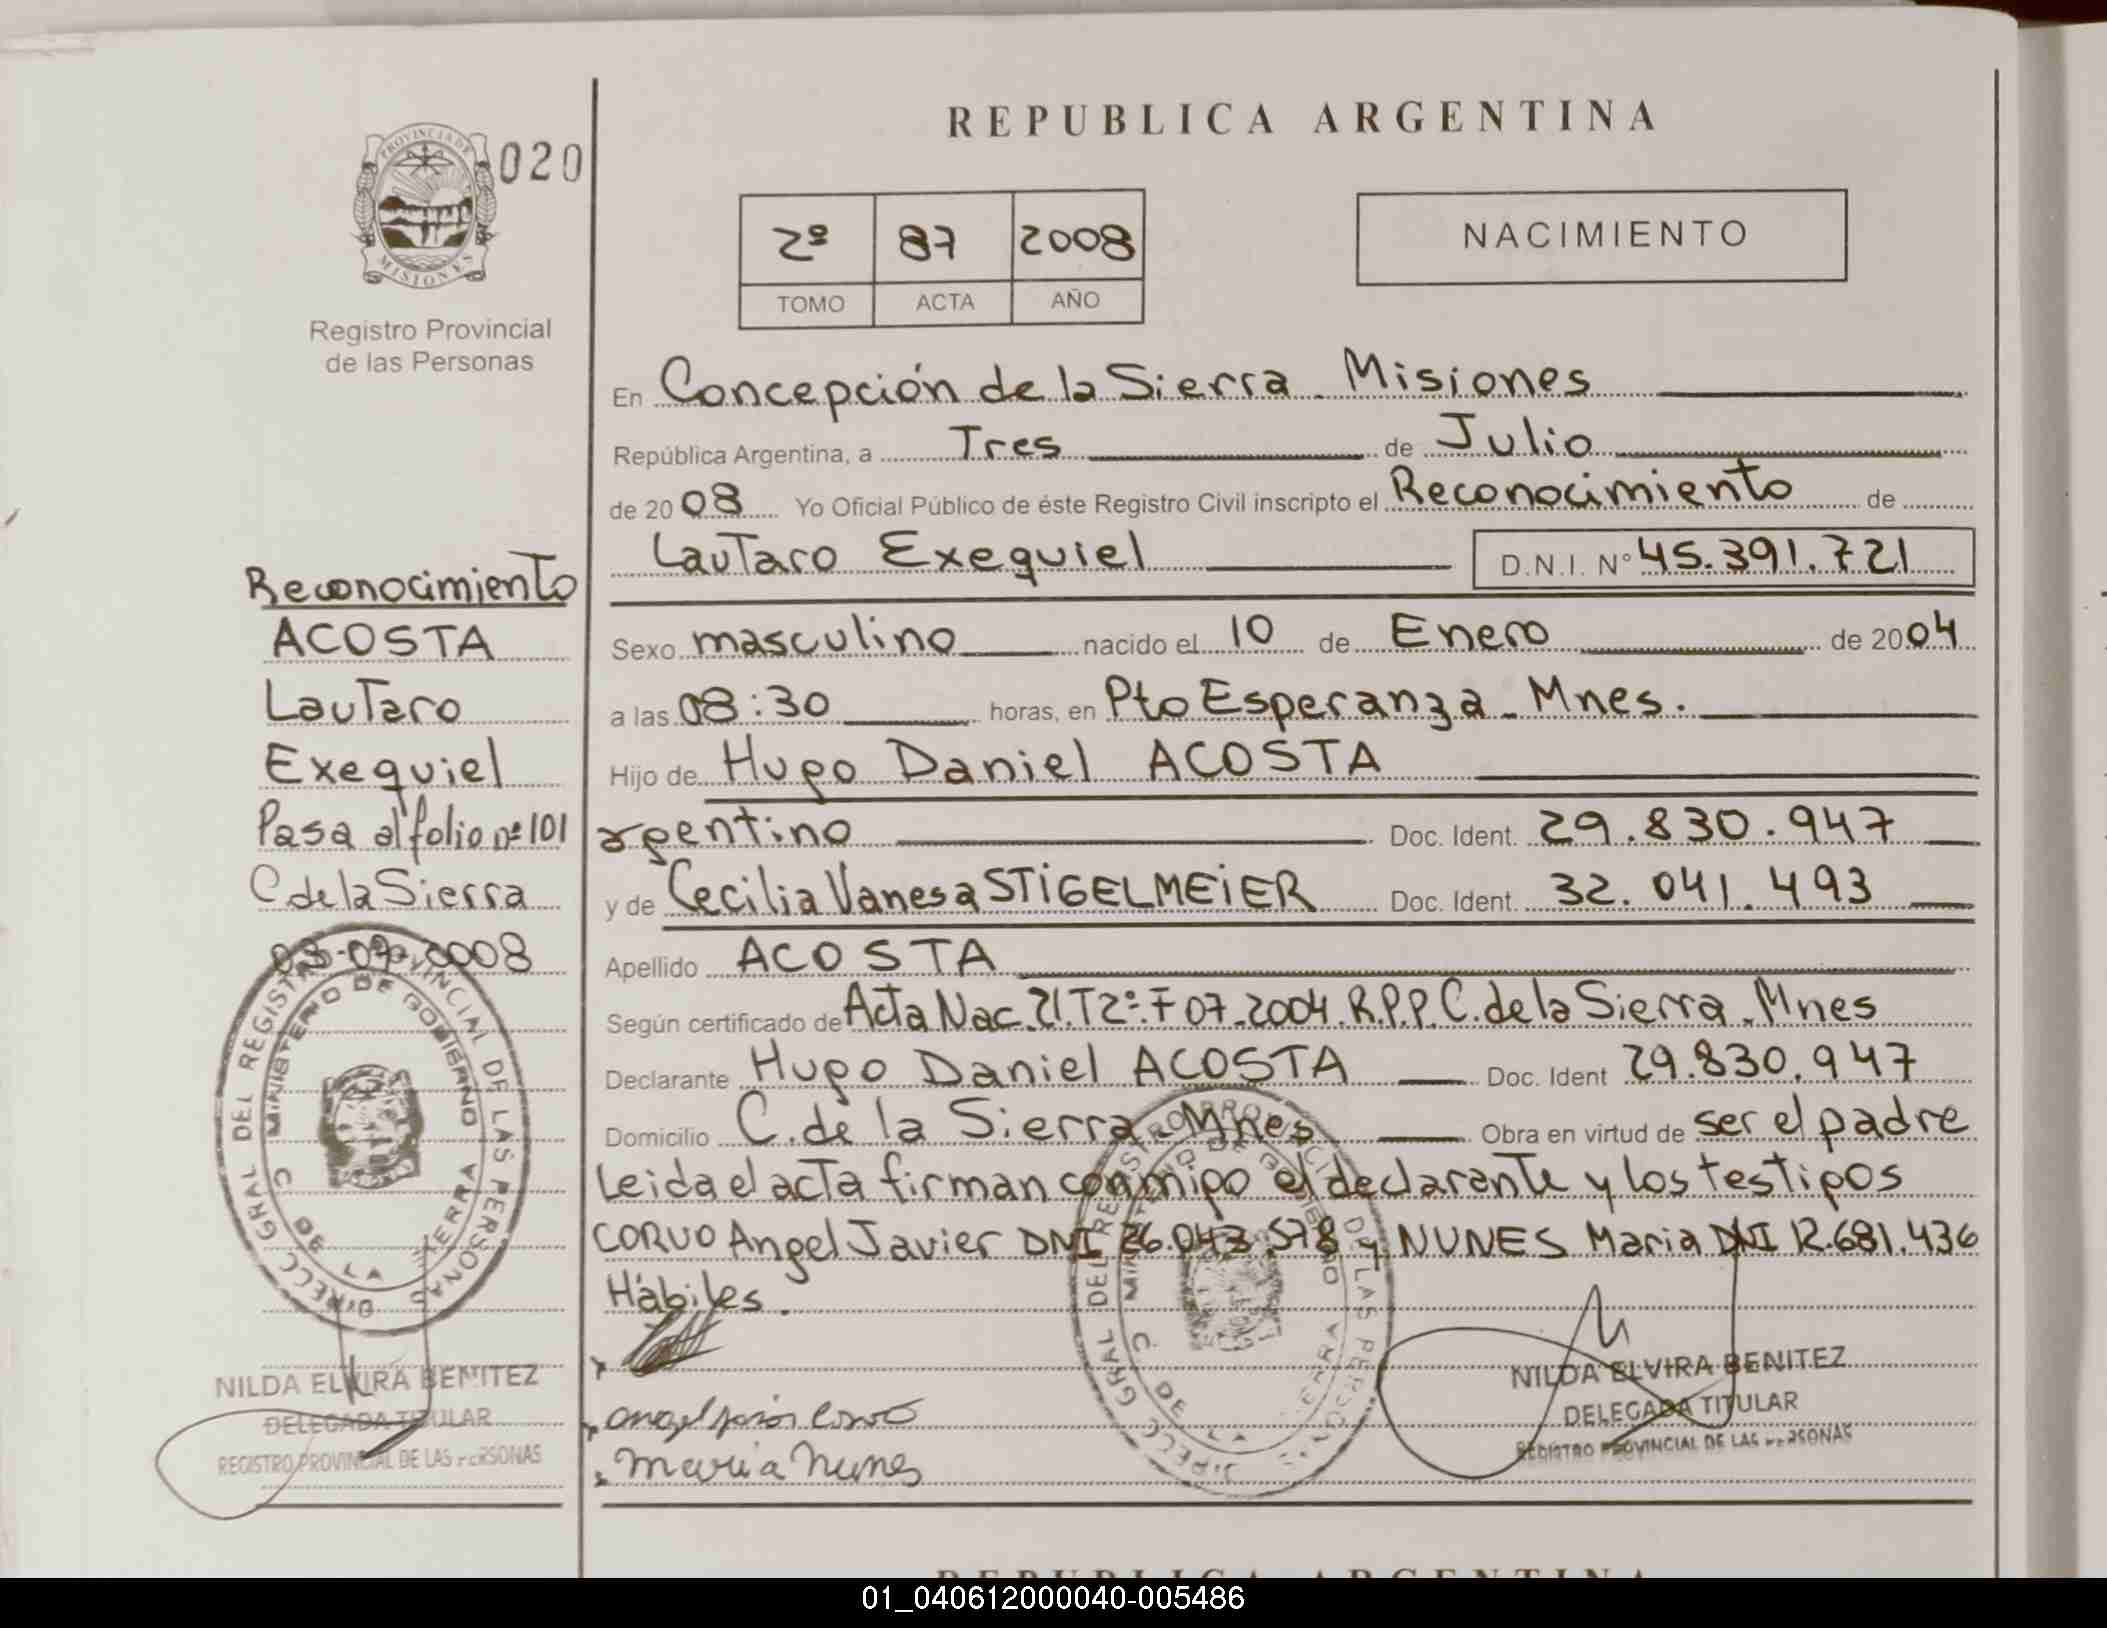 REPUBLICA ARGENTINA
PROVINCIA DE
MISIONES
020
Registro Provincial
de las Personas
2º 87 2008
TOMO ACTA AÑO
NACIMIENTO
En Concepción de la Sierra - Misiones
República Argentina, a Tres de Julio
de 2008 Yo Oficial Público de éste Registro Civil inscripto el Reconocimiento de
Lautaro Exequiel D.N.I. Nº 45.391.721
Sexo masculino nacido el 10 de Enero de 2004
a las 08:30 horas, en Pto Esperanza - Mnes.
Hijo de Hugo Daniel ACOSTA
argentino Doc. Ident. 29.830.947
y de Cecilia Vanesa STIGELMEIER Doc. Ident. 32.041.493
Apellido ACOSTA
Según certificado de Acta Nac. 21. T2º. F 07-2004. R.P.P. C. de la Sierra - Mnes
Declarante Hugo Daniel ACOSTA Doc. Ident 29.830.947
Domicilio C. de la Sierra - Mnes Obra en virtud de ser el padre
Leida el acta firman conmigo el declarante y los testigos
CORVO Angel Javier DNI 26.043.578 y NUNES Maria DNI 12.681.436
Hábiles.
Maria Nunes
NILDA ELVIRA BENITEZ
DELEGADA TITULAR
REGISTRO PROVINCIAL DE LAS PERSONAS
DIRECC GRAL DEL REGISTRO PROVINCIAL DE LAS PERSONAS
MINISTERIO DE GOBIERNO
C DE LA SIERRA
Reconocimiento
ACOSTA
Lautaro
Exequiel
Pasa al folio nº 101
C de la Sierra
03-07-2008
DIRECC GRAL DEL REGISTRO PROVINCIAL DE LAS PERSONAS
MINISTERIO DE GOBIERNO
C DE LA SIERRA
NILDA ELVIRA BENITEZ
DELEGADA TITULAR
REGISTRO PROVINCIAL DE LAS PERSONAS
REPUBLICA ARGENTINA
01_040612000040-005486